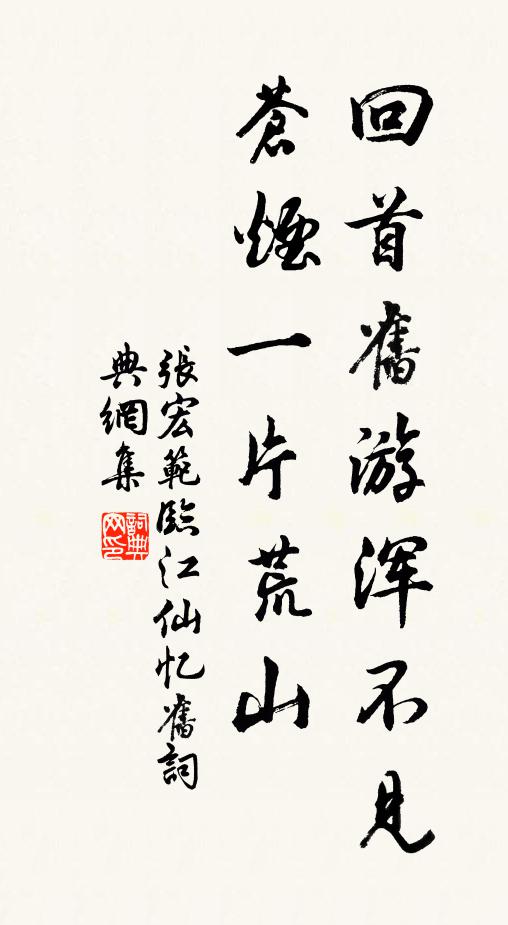 回首舊游浑不見
蒼煙一片荒山
張宏範臨江仙忆舊詞
典網集
詞典
网印